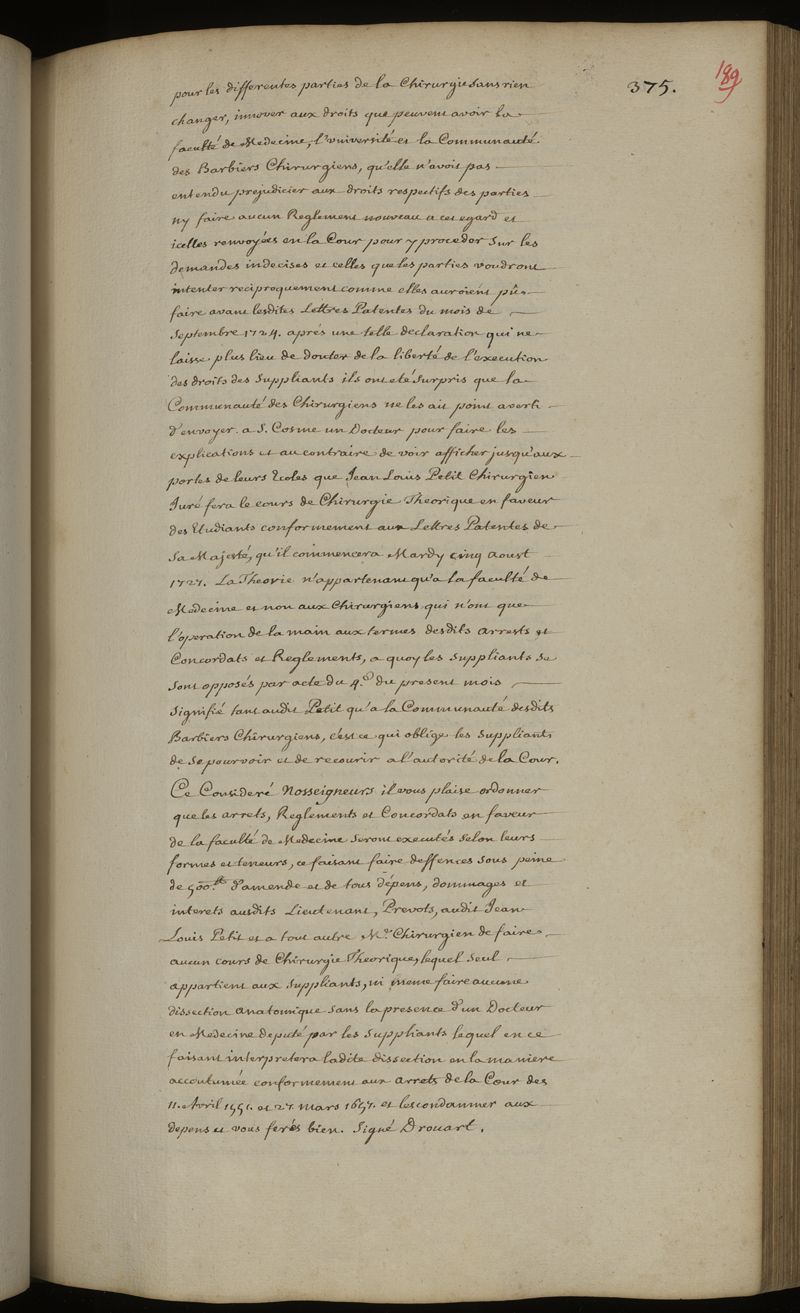 375.
189
pour les differentes parties de la Chirurgie sans rien
changer, innover aux droits que peuvent avoir la
faculté de Medecine, l'Université et la Communauté
des Barbiers Chirurgiens, qu'elle n'avoit pas
entendu prejudicier aux droits respectifs des parties
ny faire aucun Reglement nouveau a cet egard et
icelles renvoyées en la Cour pour y proceder sur les
demandes indecises et celles que les parties voudront
intenter reciproquement comme elles auroient pû
faire avant lesdites Lettres Patentes du mois de
Septembre 1724. aprés une telle declaration qui ne
laisse plus lieu de douter de la liberté de l'execution
des droits des Suppliants ils ont eté surpris que la
Communauté des Chirurgiens ne les ait point averti
d'envoyer a S. Cosme un Docteur pour faire les
explications et au contraire de voir afficher jusqu'aux
portes de leurs Ecoles que Jean Louis Petit Chirurgien
Juré fera le cours de Chirurgie Theorique en faveur
des Etudiants conformement aux Lettres Patentes de
Sa Majesté, qu'il commencera Mardy cinq Aoust
1727. La Theorie n'appartenant qu'a la faculté de
Medecine et non aux Chirurgiens qui n'ont que
l'operation de la main aux termes desdits arrests et
Concordats et Reglements, a quoy les Suppliants se
sont opposés par acte du 4.e du present mois
signifié tant audit Petit qu'a la Communauté desdits
Barbiers Chirurgiens, c'est ce qui oblige les Suppliants
de se pourvoir et de recourir a l'autorité de la Cour.
Ce Consideré Nosseigneurs il vous plaise ordonner
que les arrets, Reglements et Concordats en faveur
de la faculté de Medecine seront executés selon leurs
formes et teneurs, ce faisant faire deffences sous peine
de 500.tt d'amende et de tous dépens, dommages et
interets ausdits Lieutenant, Prevots, audit Jean
Louis Petit et a tout autre M.e Chirurgien de faire
aucun cours de Chirurgie Theorique, lequel seul
appartient aux Suppliants, ni meme faire aucune
dissection anatomique sans la presence d'un Docteur
en Medecine deputé par les Suppliants lequel en ce
faisant interpretera ladite dissection en la maniere
accoutumée conformement aux arrets de la Cour des
11. Avril 1551. et 27. Mars 1657. et les condamner aux
depens et vous ferés bien. Signé Drouart.